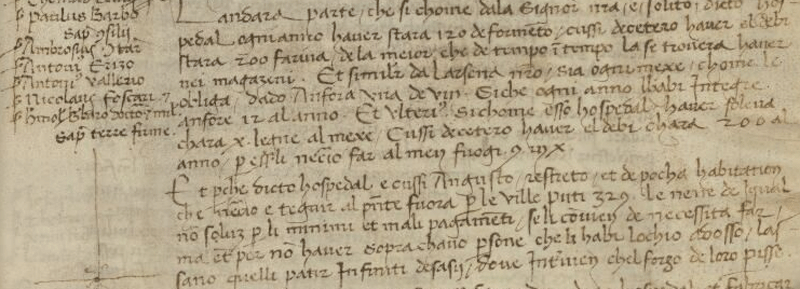 Paulus Barbo
Sap. 9silij
Ambrosius
Antoni Erizo
Antoni Vallerio
Nicolaus foscari
Sap. terre firme
Landara parte, che si chome dala Signor nra, e, solito, dicto Hos-
pedal ogni anno haver stara 120 de formento, cussi decetero haver el debi
stara 200 farina, de la meior, che de tempo in tempo la se trovera haver
nei magazeni. Et similr da Larsena nro, sia ogni mexe, chome le
obliga, dado Anfora una de vin. Siche ogni anno Lhabi Integre.
Anfore 12 al anno. Et Ulteri9 Sichome esso hospedal haver soleva
chara x. legne al mexe, Cussi decetero haver el debi chara 200 al
anno, p esserli necio far al men fuogi
Et pche dicto hospedal e cussi Angusto, restreto, et de pocha habitation
che necio e tegnir al pnte fuora p le ville puti 329. le nene de qual
no soluz p li minimi et mali pagameti, se li convien de necessita far,
ma et per no haver sopra chavo psone che li habi lochio adosso, las-
sano quelli patir Infiniti desasij, dove Intervien chel forzo de loro pisse